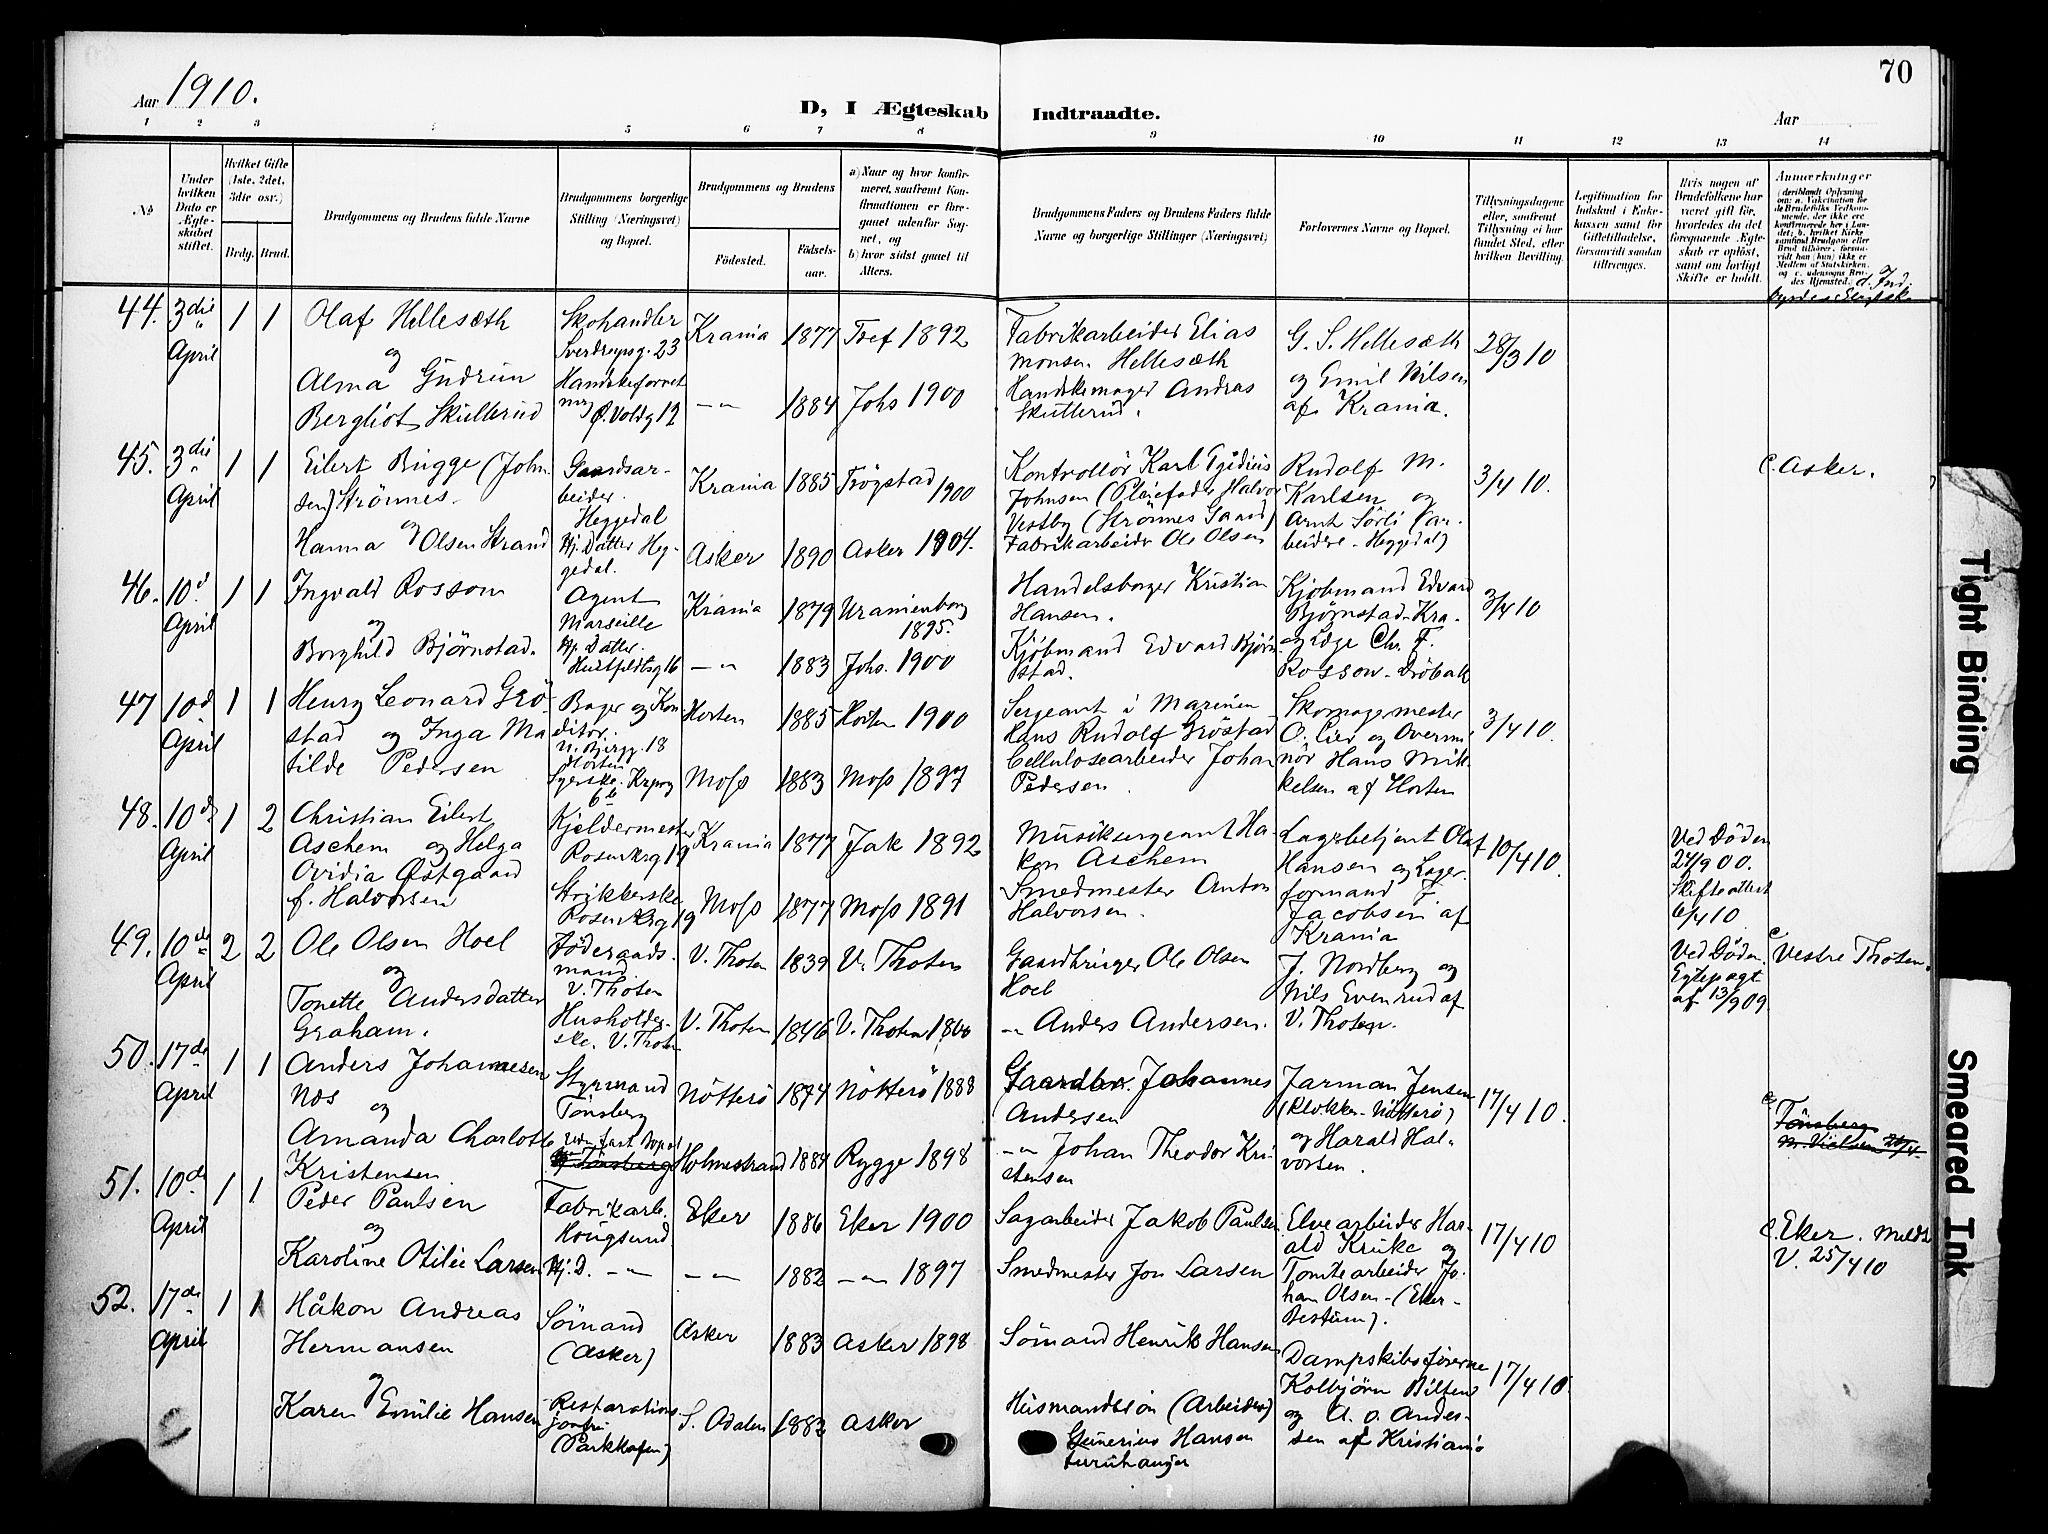 70
Aar 1910.
D, I Ægteskab Indtraadte.
Aar
1 2 3 4 5 6 7 8 9 10 11 12 13 14
No
Under hvilken Dato er Ægteskabet stiftet.
Hvilket Gifte (1ste, 2det, 3die osv.)
Brdg. Brud.
Brudgommens og Brudens fulde Navne
Brudgommens borgerlige Stilling (Næringsvei) og Bopæl.
Brudgommens og Brudens
Fødested.
Fødselsaar.
a) Naar og hvor konfirmeret, saafremt Konfirmationen er foregaaet udenfor Sognet, og
b) hvor sidst gaaet til Alters.
Brudgommens Faders og Brudens Faders fulde Navne og borgerlige Stillinger (Næringsvei)
Forlovernes Navne og Bopæl.
Tillysningsdagene eller, saafremt Tillysning ei har fundet Sted, efter hvilken Bevilling.
Legitimation for Indskud i Enkekassen samt for Giftetilladelse, forsaavidt saadan tiltrænges.
Hvis nogen af Brudefolkene har været gift før, hvorledes da det foregaaende Ægteskab er opløst, samt om lovligt Skifte er holdt.
Anmærkninger
44. 3die April 1 1
Olaf Hellesæth
og
Alma Gudrun
Bergliot Skullerud
Skohandler
Sverdrupsg. 23
Ø. Voldg 12
Krania 1877 Tref 1892
—"— 1884 Johs 1900
Fabrikarbeider Elias
Monsen Hellesæth
Handskemager Andras
G. S. Hellesæth
og Emil Nilsen
af Krania.
28/3 10
45. 3die April 1 1
Eilert Bugge (Johnsen) Strönnes.
og
Hanna Olsen Strand
Gaardsarbeider.
Heggedal
Hj. Datter Heggedal.
Krania 1885 Trögstad 1900
Asker 1890 Asker 1904.
Kontrollör Karl Egidius
Johnsen (Pleiefader Halvor
Vestby (Strönnes Gaard)
Fabrikarbeider Ole Olsen
Rudolf M.
Karlsen og
Arnt Sörli (arbeidere - Heggedal)
3/4 10.
c. Asker.
46. 10d April 1 1
Ingvald Rossow
og
Borghild Bjørnstad.
Agent
Marseille
Hj. Datter.
Huitfeldtsg 16
Krania 1879 Uranienborg 1895.
—"— 1883 Johs. 1900
Handelsborger Kristian
Hansen.
Kjöbmand Edvard Bjørnstad.
Kjöbmand Edvard
Bjørnstad - Kra.
og Læge Chr. F.
Rossow - Dröbak
3/4 10
47 10d April 1 1
Henry Leonard Gröstad og Inga Matilde Pedersen
Bager og Konditor.
Horten
Horten 1885 Horten 1900
Moss 1883 Moss 1897
Sergeant i Marinen
Hans Rudolf Gröstad
Cellulosearbeider Johan
Pedersen
Skomagermester
O. Lied og Overminör Hans Mikkelsen af Horten
3/4 10.
48. 10d April 1 2
Christian Eilert
Aschem og Helga
Ovidia Østgaard
f. Halvorsen
Kjeldermester
Rosenkrg 19
Strikkerske
Rosenkrg 19
Krania 1877 Jak 1892
Moss 1877 Moss 1891
Musiksergeant Hakon Aschem
Smedmester Anton
Halvorsen.
Lagerbetjent Olaf
Hansen og Lagerformand F.
Jacobsen af
Krania
10/4 10.
Ved Döden
Skifteattest
6/4 10
49. 10de April 2 2
Ole Olsen Hoel
og
Tonette Andersdatter
Graham.
Föderaadsmand.
V. Thoten
Husholderske. V. Thoten
V. Thoten 1839 V. Thoten
V. Thoten 1846 V. Thoten
Gaardbruger Ole Olsen
Hoel
—"— Anders Andersen.
J. Nordberg og
Nils Evenrud af
V. Thoten.
Ved Döden.
Egtepagt
af 13/9 09.
c Vestre Thoten.
50. 17de April 1 1
Anders Johannesen
Næs
og
Amanda Charlotte
Kristensen
Styrmand
Tönsberg
uden fast Bopæl
Nötterö 1874 Nötterö 1888
Holmestrand 1884 Rygge 1898
Gaardbr. Johannes
Andersen
—"— Johan Theodor Kristensen
Jarman Jensen
(Klokker - Nötterö)
og Harald Halvorsen.
17/4 10.
c Tönsberg
51. 10de April 1 1
Peder Paulsen
og
Karoline Otilie Larsen
Fabrikarb.
Hougsund
Hj. D. —"—
Eker 1886 Eker 1900
—"— 1882 —"— 1897
Sagarbeider Jakob Paulsen
Smedmester Jon Larsen
Elvearbeider Harald Kruke og
Tomtearbeider Johan Olsen - (Eker -
Bestum).
17/4 10
c. Eker. Meldt
V. 25/4 10
52. 17de April 1 1
Håkon Andreas
Hermansen
og
Karen Emilie Hansen
Sömand
(Asker)
Restorationsjomfru
(Parkkafen)
Asker 1883 Asker 1898
S. Odalen 1882 Asker
Sömand Henrik Hansen
Husmandssön (Arbeider)
Gunerius Hansen
Dampskibsförerne
Kolbjörn Nilsen
og A. O. Andersen af Kristiania
17/4 10.
Tight Binding
Smeared Ink